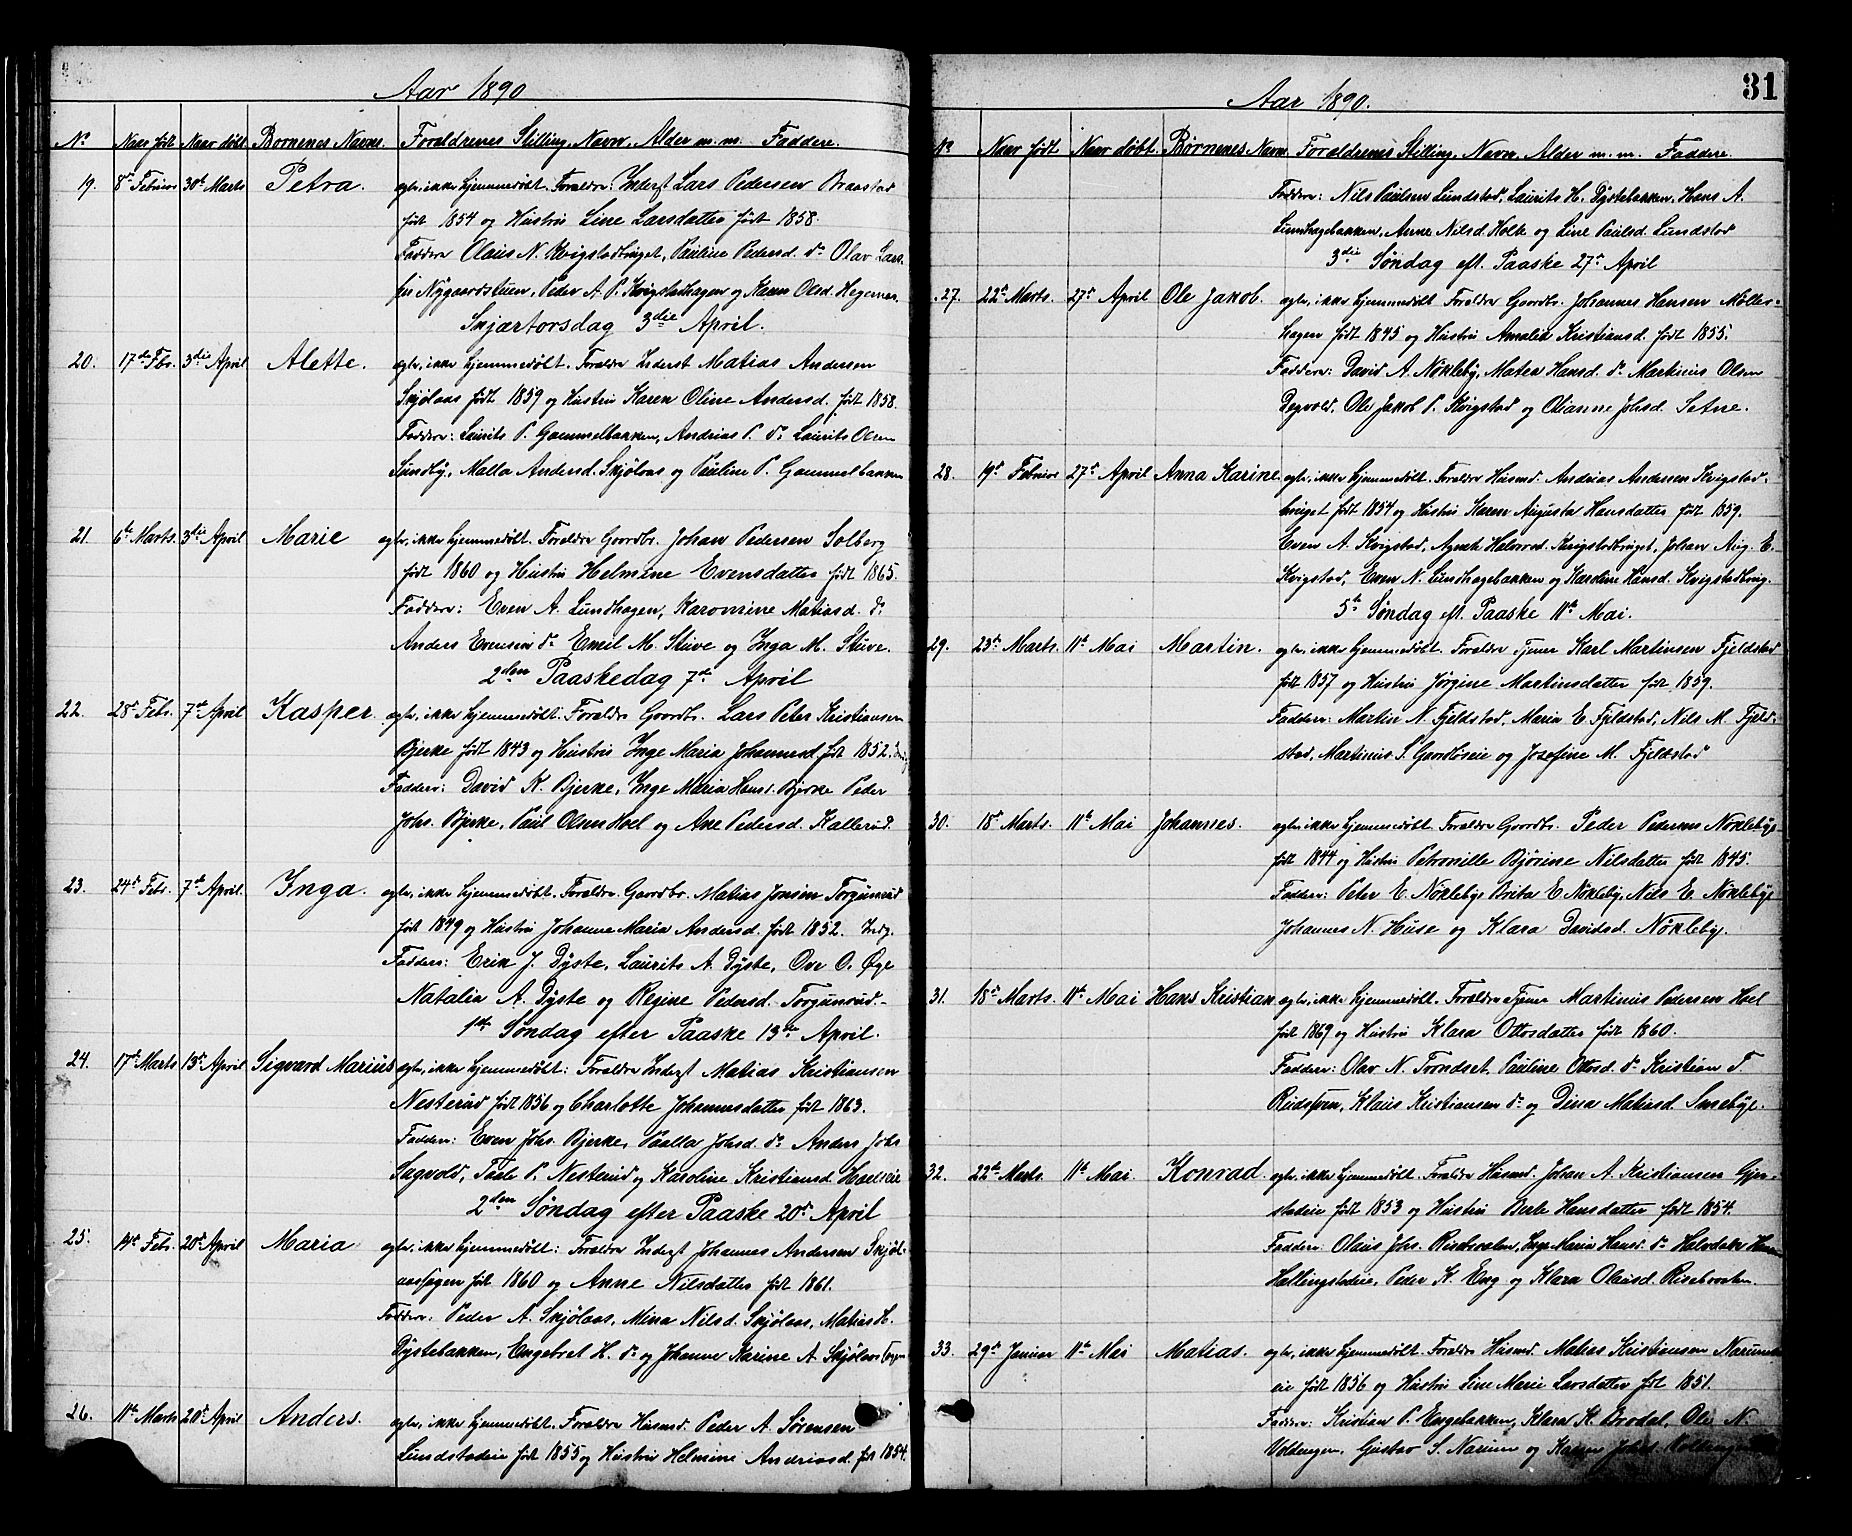 Aar 1890
No Naar født Naar døbt Børnenes Navne Forældrenes Stilling, Navn, Alder m. m. Faddere.
19. 8de Februar 30te Marts Petra. ægte, ikke hjemmedøbt. Forældre: Inderst Lars Pedersen Braastad
født 1854 og Hustru Line Larsdatter født 1858.
Faddere Olaus N. Kvigstadbruget, Pauline Pedersd. do Olav Lars.
Nygaardstuen, Peder A. P. Kvigstadhagen og Karen Olsd. Hegernes.
Skjærtorsdag 3die April.
20. 17de Fbr. 3die April Alette. ægte, ikke hjemmedøbt. Forældre Inderst Matias Andersen
Skjølaas født 1859 og Hustru Karen Oline Andersd. født 1858.
Faddere: Laurits P. Gammelbakken, Andreas P. do Laurits Olsen
Sundby, Malla Andersd. Skjølaas og Pauline P. Gammelbakken
21. 6te Marts. 3die April Marie ægte, ikke hjemmedøbt. Forældre Gaardbr. Johan Pedersen Solberg
født 1860 og Hustru Helmine Evensdatter født 1865.
Faddere: Even A. Lundhagen, Karomine Matiasd. do.
Anders Evensen do Emil M. Stuve og Inga M. Stuve.
2den Paaskedag 7de April
22. 28de Febr. 7de April Kasper. ægte, ikke hjemmedøbt. Forældre Gaardbr. Lars Peter Kristiansen
Bjerke født 1843 og Hustru Inge Maria Johannesd. født 1852.
Faddere: David K. Bjerke, Inge Maria Hansd. Bjerke Peder
Johs. Bjerke, Paul Olsen Hoel og Ane Pedersd. Kallerud.
23. 24de Febr. 7de April. Inga. ægte, ikke hjemmedøbt. Forældre Gaardbr. Matias Jonsen Torgunrud
født 1849 og Hustru Johanne Maria Andersd. født 1852. Indg.
Faddere: Erik J. Dyste, Laurits A. Dyste, Ove O. Øge
Natalia A. Dyste og Regine Pedersd. Torgunrud.
1ste Søndag efter Paaske 13de April.
24. 17de Marts 13de April Sigvard Marius ægte, ikke hjemmedøbt: Forældre Inderst Matias Kristiansen
Nesterud født 1856 og Charlotte Johannesdatter født 1863.
Faddere: Even Johs. Bjerke, Paalla Johsd. do Anders Johs
Sagvold, Tale P. Nesterud og Karoline Kristiansd. Hoelseie
2den Søndag efter Paaske 20de April
25. 14de Febr. 20de April Maria ægte, ikke hjemmedøbt: Forældre Inderst Johannes Andersen Skjøl-
aashagen født 1860 og Anne Nilsdatter født 1861.
Faddere: Peder A. Skjølaas, Mina Nilsd. Skjølaas, Matias L.
Dystebakken, Engebret H. do og Johanne Karine A. Skjølaas
26. 11te Marts 20de April Anders. ægte, ikke hjemmedøbt. Forældre Husmd. Peder A. Sørensen
Lundstadeie født 1855 og Hustru Helmine Andreasd. født 1854.
31
Aar 1890.
No Naar født. Naar døbt. Børnenes Navn Forældrenes Stilling, Navn, Alder m. m. Faddere.
Faddere: Nils Paulsen Lundstad, Laurits H. Dystebakken, Hans A.
Lundhagebakken, Anne Nilsd. Holte og Line Paulsd. Lundstad
3die Søndag eft. Paaske 27de April
27. 22de Marts. 27de April Ole Jakob. ægte, ikke hjemmedøbt Forældre Gaardbr. Johannes Hansen Møller-
hagen født 1845 og Hustru Amalia Kristiansd. født 1855.
Faddere: David A. Nøkleby, Matea Hansd. do Martinius Olsen
Degvold, Ole Jakob P. Kvigstad og Olianne Johsd. Setne.
28. 19de Februar 27de April Anna Karine ægte, ikke hjemmedøbt. Forældre Husmd. Andreas Andersen Kvigstad-
bruget født 1854 og Hustru Karen Augusta Hansdatter født 1859.
Even A. Kvigstad, Agnete Halvorsd. Kvigstadbruget, Johan Aug. E.
Kvigstad, Even N. Lundhagebakken og Kardine Hansd. Kvigstadbrug.
5te Søndag eft. Paaske 11te Mai.
29. 23de Marts. 11te Mai Martin. ægte, ikke hjemmedøbt. Forældre Tjener Karl Martinsen Fjeldstad
født 1857 og Hustru Jørgine Martinsdatter født 1859.
Faddere: Martin N. Fjeldstad, Maria E. Fjeldstad, Nils M. Fjeld-
stad, Martinus S. Gaardløseie og Josefine M. Fjeldstad
30. 18de Marts. 11te Mai Johannes. ægte, ikke hjemmedøbt. Forældre Gaardbr. Peder Pedersen Nøklebye
født 1844 og Hustru Petronille Bjørine Nilsdatter født 1845.
Faddere: Peter E. Nøklebye Brita E. Nøkleby, Nils E. Nøklebye
Johannes N. Huse og Klara Davidsd. Nøkleby.
31. 18de Marts. 11te Mai Hans Kristian ægte, ikke hjemmedøbt. Forældre Tjener Martinius Pedersen Hoel
født 1869 og Hustru Klara Ottosdatter født 1860.
Faddere: Olav N. Trondset, Pauline Ottosd. do Kristian T.
Rudsføen, Klaus Kristiansen do og Dina Matiasd. Smebye.
32. 22de Marts. 11te Mai. Konrad ægte, ikke hjemmedøbt. Forældre Husmd. Johan A. Kristiansen Gjer-
stadeie født 1853 og Hustru Berte Hansdatter født 1854.
Faddere: Olaus Johs. Risebraaten, Inge Maria Hansd. do Halvdan Hansen
Hallingstadeie, Peder K. Eng og Klara Olausd. Risebraaten.
33. 29de Januar 11te Mai Matias. ægte, ikke hjemmedøbt. Forældre Husmd. Matias Kristiansen Narum-
eie født 1856 og Hustru Line Marie Larsdatter født 1851.
Faddere: Kristian P. Engebakken, Klara K. Brodal, Ole N.
Voldengen, Gustav S. Narum og Karen Johs.